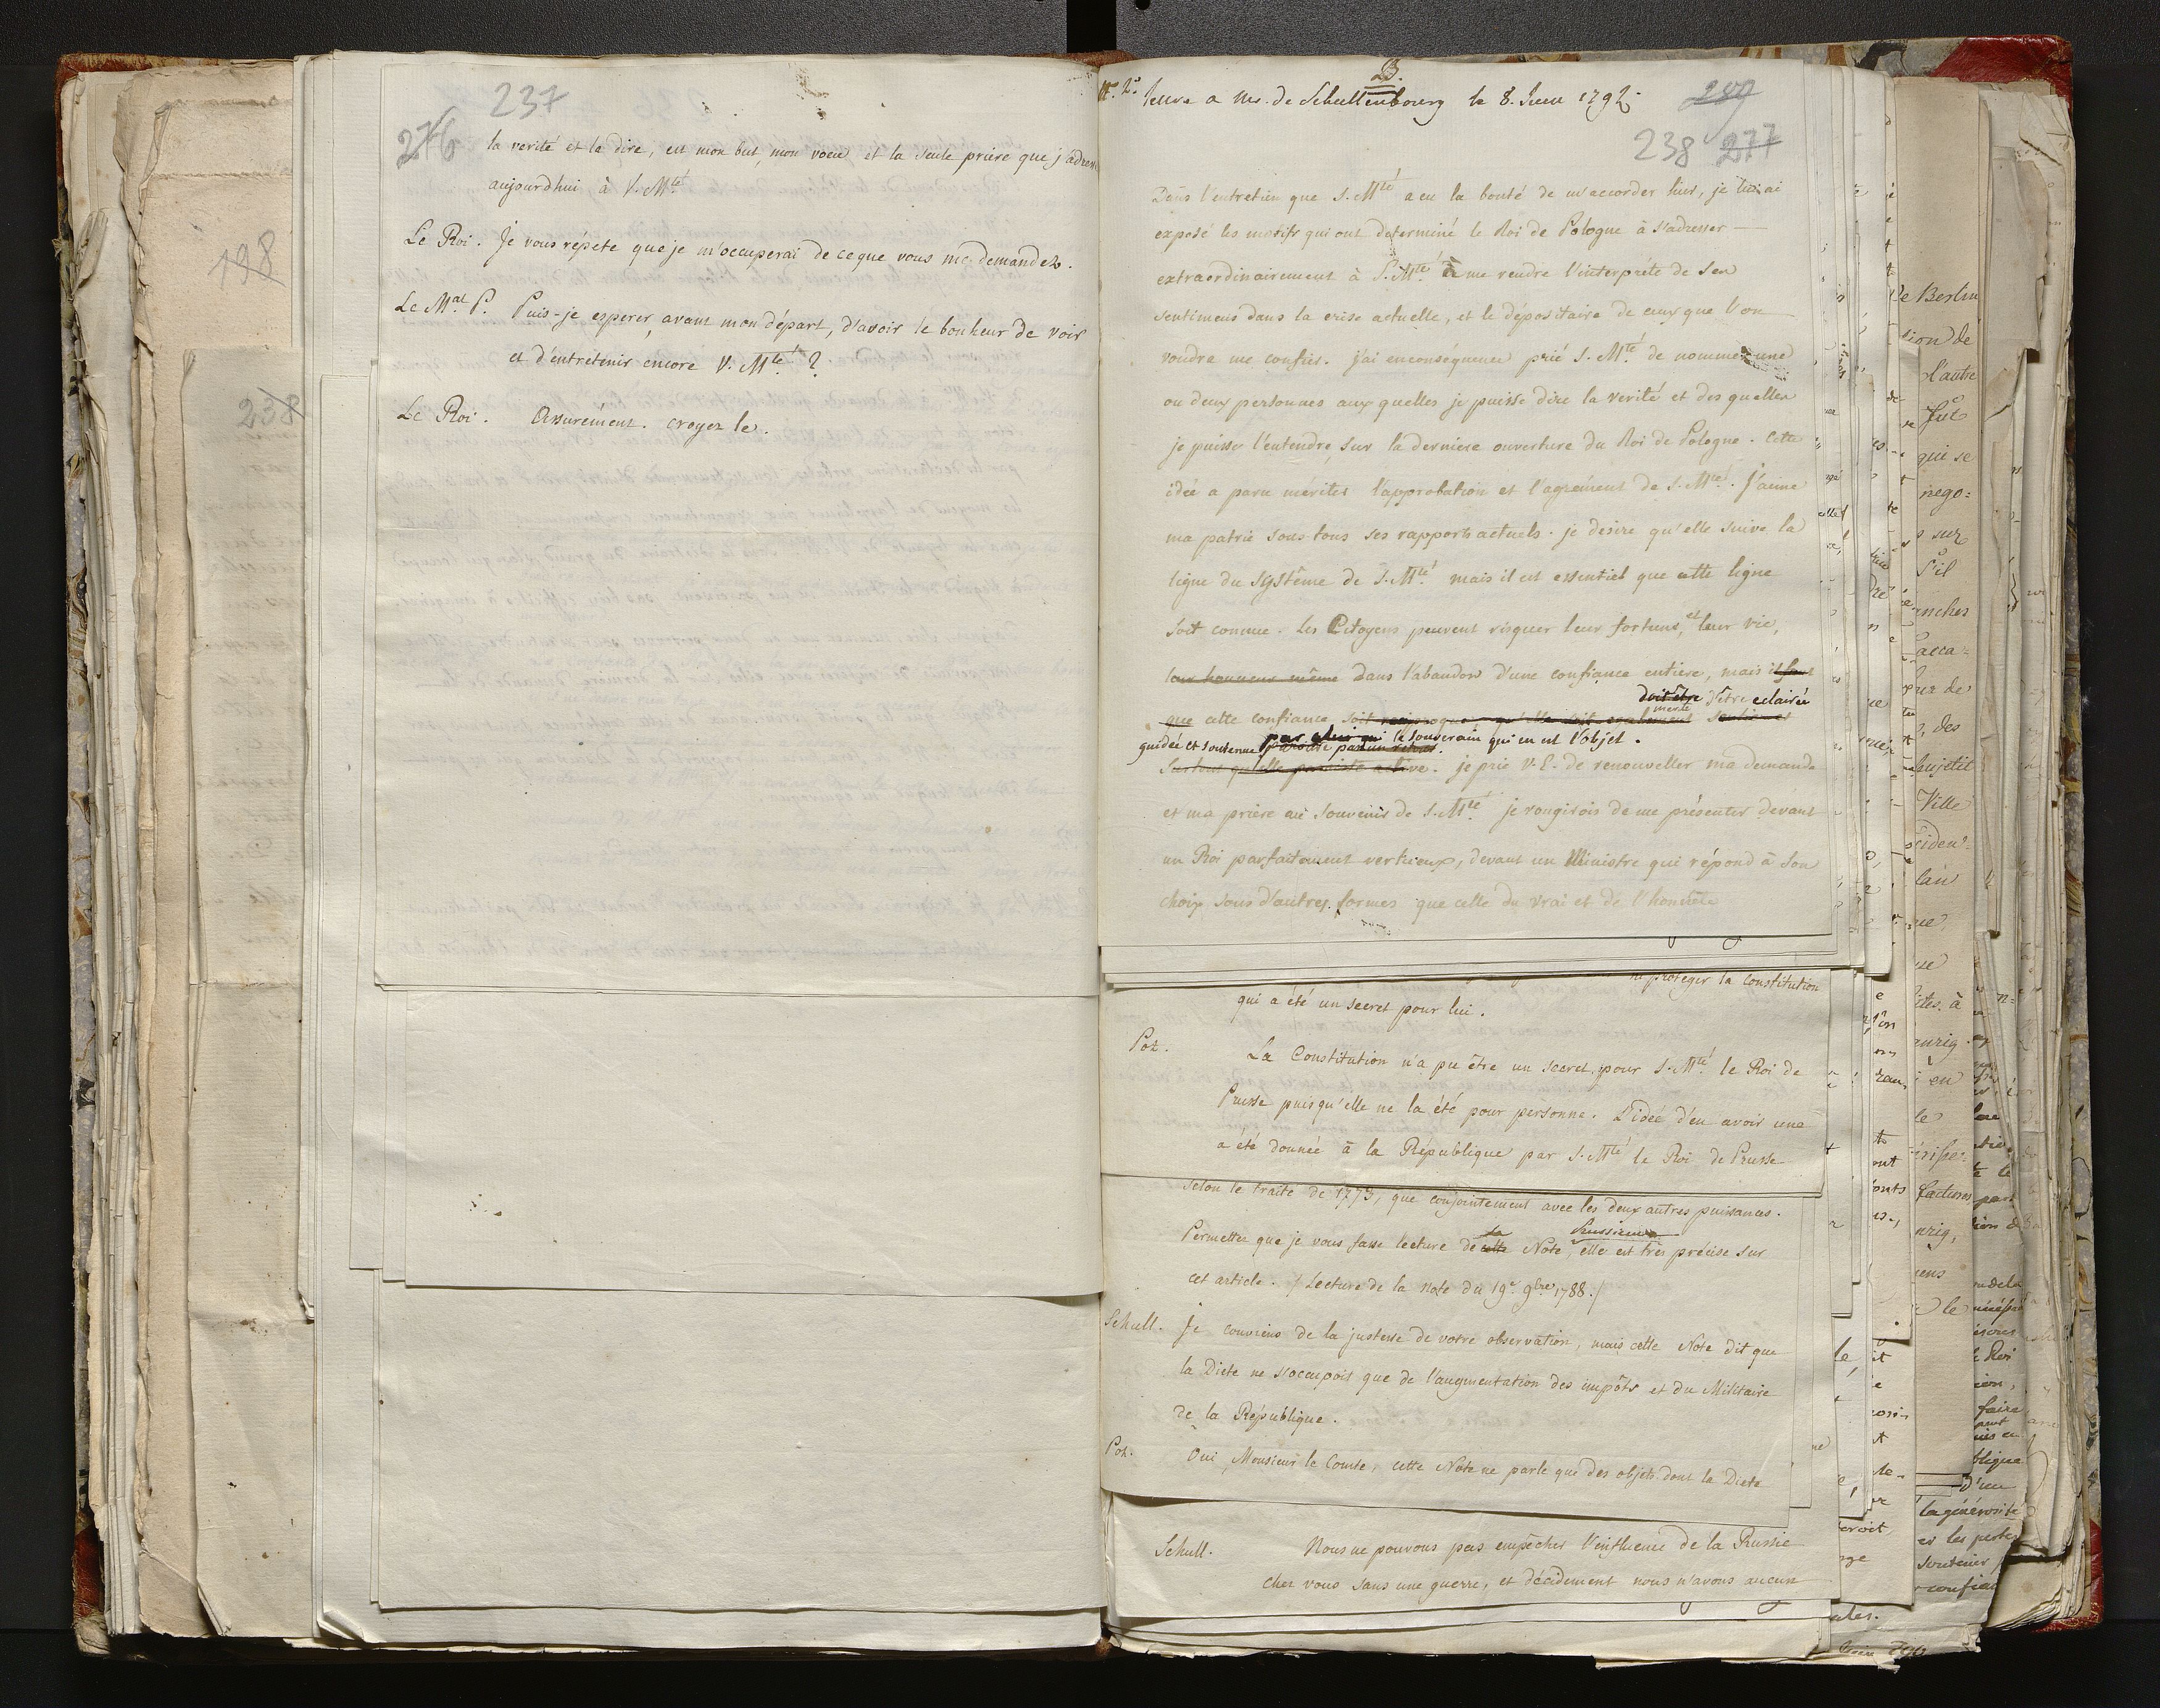 237
276
la verité et la dire, est mon but, mon voeu et la seule priere que j'adresse
aujourd'hui à V. Mté
Le Roi. Je vous répete que je m'occuperai de ce que vous me demandez.
Le Mal P. Puis-je esperer, avant mon départ, d'avoir le bonheur de voir
et d'entretenir encore V. Mté ?
Le Roi. Assurément. croyez le.
198
238
B.
Nº 2º lettre a Mr. de Schullenbourg le 8. Juin 1792.
238 277
Dans l'entretien que S. Mté a eu la bonté de m'accorder hier, je lui ai
exposé les motifs qui ont determiné le Roi de Pologne à s'adresser
extraordinairement à S. Mté à me rendre l'interpréte de ses
sentimens dans la crise actuelle, et le dépositaire de ceux que l'on
voudra me confier. j'ai en conséquence prié S. Mté de nommer une
ou deux personnes aux quelles je puisse dire la verité et des quelles
je puisse l'entendre, sur la derniere ouverture du Roi de Pologne. Cette
idée a paru mériter l'approbation et l'agrément de S. Mté. J'aime
ma patrie sous tous ses rapports actuels. je desire qu'elle suive la
ligne du systême de S. Mté mais il est essentiel que cette ligne
soit connue. Les Citoyens peuvent risquer leur fortune, et leur vie,
leur honneur même dans l'abandon d'une confiance entiere, mais il faut
doit être d'être eclairée
merite
que cette confiance soit reciproque, qu'elle soit egalement soutenue
par celui qui le souverain qui en est l'objet.
guidée et soutenue
surtout qu'elle paroisse active. je prie V. E. de renouveller ma demande
et ma priere au souvenir de S. Mté je rougirois de me présenter devant
un Roi parfaitement vertueux, devant un Ministre qui répond à son
choix sous d'autres formes que celle du vrai et de l'honnête
protéger la Constitution
qui a été un secret pour lui.
Pot. La Constitution n'a pu être un secret pour S. Mté le Roi de
Prusse puisqu'elle ne la été pour personne. L'idée d'en avoir une
a été donnée à la République par S. Mté le Roi de Prusse
selon le traité de 1773, que conjointement avec les deux autres puissances.
la Prussienne
Permettez que je vous fasse lecture de cette Note, elle est très précise sur
cet article. / Lecture de la note du 19e 9bre 1788. /
Schull. Je conviens de la justesse de votre observation, mais cette Note dit que
la Diete ne s'occupoit que de l'augmentation des impôts et du Militaire
de la République.
Pot. Oui, Monsieur le Comte, cette Note ne parle que des objets dont la Diete
Schull. Nous ne pouvons pas empêcher l'influence de la Russie
chez vous sans une guerre, et décidement nous n'avons aucun
de Berlin
l'autre
fut
qui se
nego=
sur
s'il
acca=
des
Ville
en
le
factures
la générosité
les pertes
soutenir